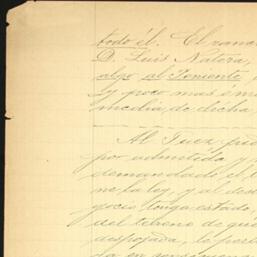 todo él. El ranc
D. Luis Natera,
algo al Poniente
y poco mas ó m
media, de dicha
Al Juez pid
por admitida y
demandado el t
ne la ley, y al des
gocio tenga estado,
del terreno de que
despojada, la per
da en